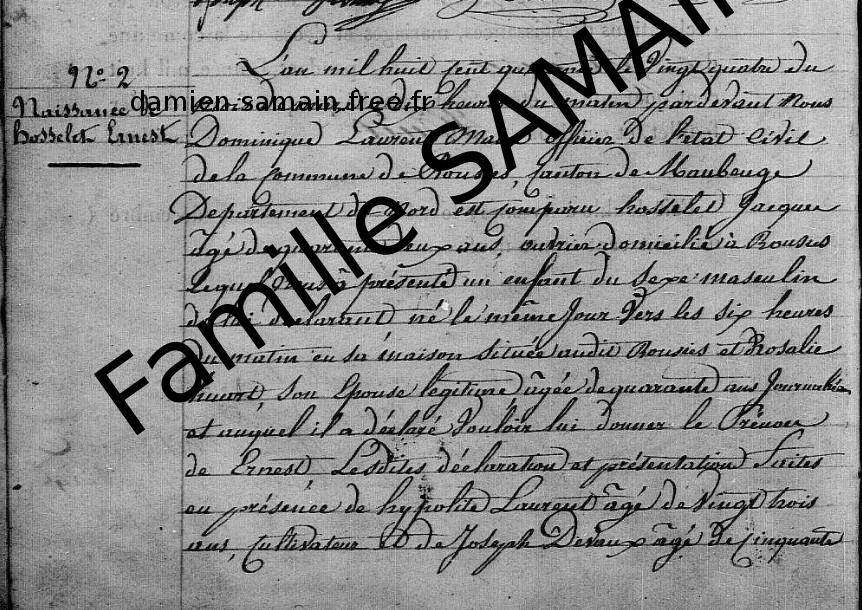 N° 2
Naissance de
hosselet Ernest
damien.samain.free.fr
Famille SAMAIN
L'an mil huit cent le Vingt quatre du
dix heures du matin pardevant Nous
Dominique Laurent officier de l'état Civil
de la Commune de Rousies, Canton de Maubeuge
Département du Nord est comparu hosselet Jacques
âgé de quarante deux ans, ouvrier domicilié à Rousies
Lequel Nous à présenté un enfant du Sexe masculin
de lui déclarant né le même Jour Vers les six heures
du matin en sa maison située audit Rousies et Rosalie
huart, Son Epouse legitime âgée de quarante ans Journalière
et auquel il a déclaré Vouloir lui donner le Prénom
de Ernest. Lesdites déclaration et présentation faites
en présence de hypolite Laurent âgé de Vingt trois
ans, Cultivateur et de Joseph Devaux âgé de Cinquante